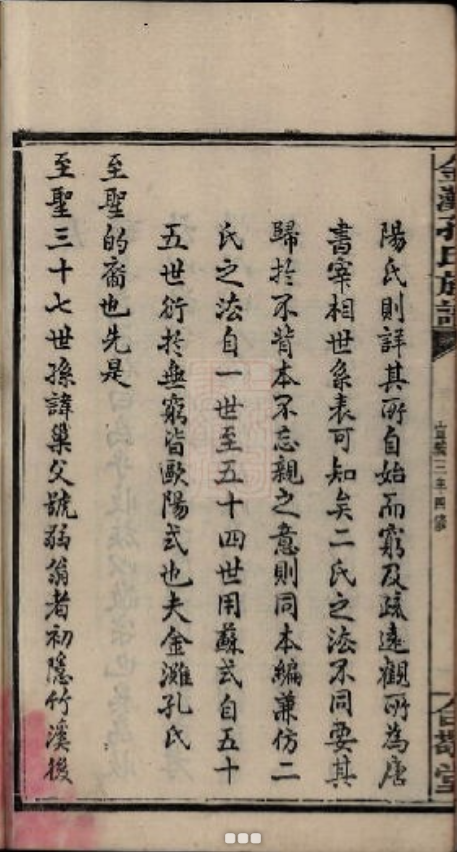 陽氏則詳其所自始而窮及疏遠觀所為唐
書宰相世系表可知矣二氏之法不同要其
歸於不背本不忘親之意則同本編兼仿二
氏之法自一世至五十四世用蘇式自五十
五世衍於無窮皆歐陽式也夫金灘孔氏
至聖的裔也先是
至聖三十七世孫諱巢父號弱翁者初隱竹溪後
金灘孔氏族譜
三年四修
合敬堂